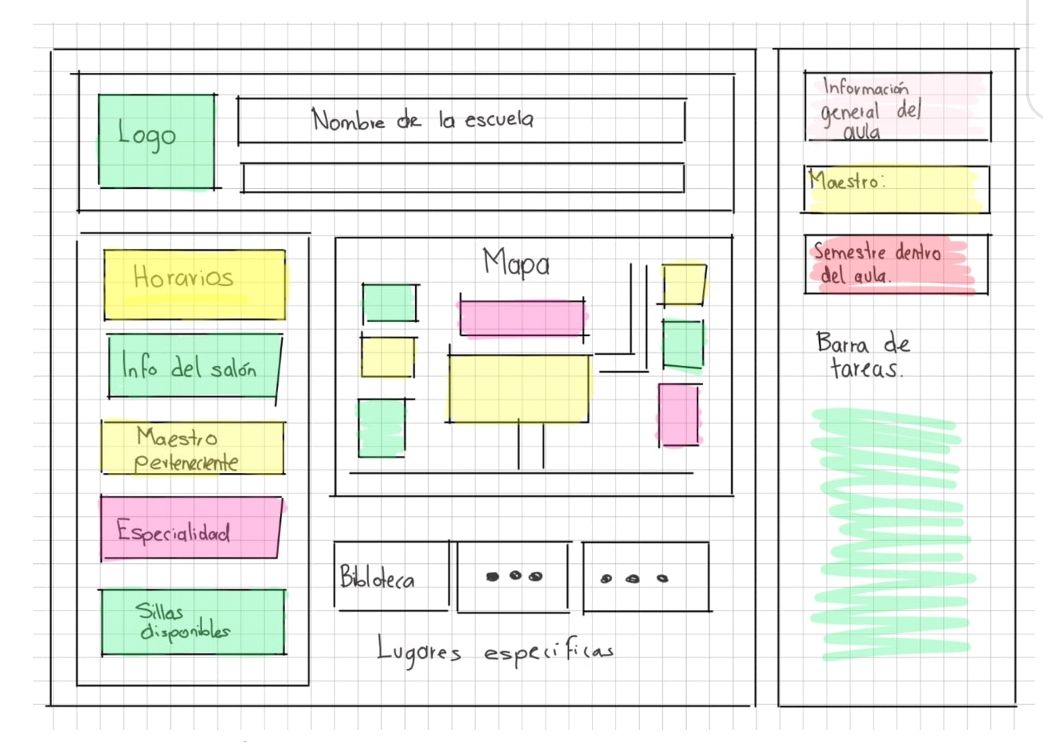 Logo
Nombre de la escuela
Horarios
Info del salón
Maestro
perteneciente
Especialidad
Sillas
disponibles
Mapa
Bibloteca
Lugares especificas
Información
general del
aula
Maestro:
Semestre dentro
del aula.
Barra de
tareas.